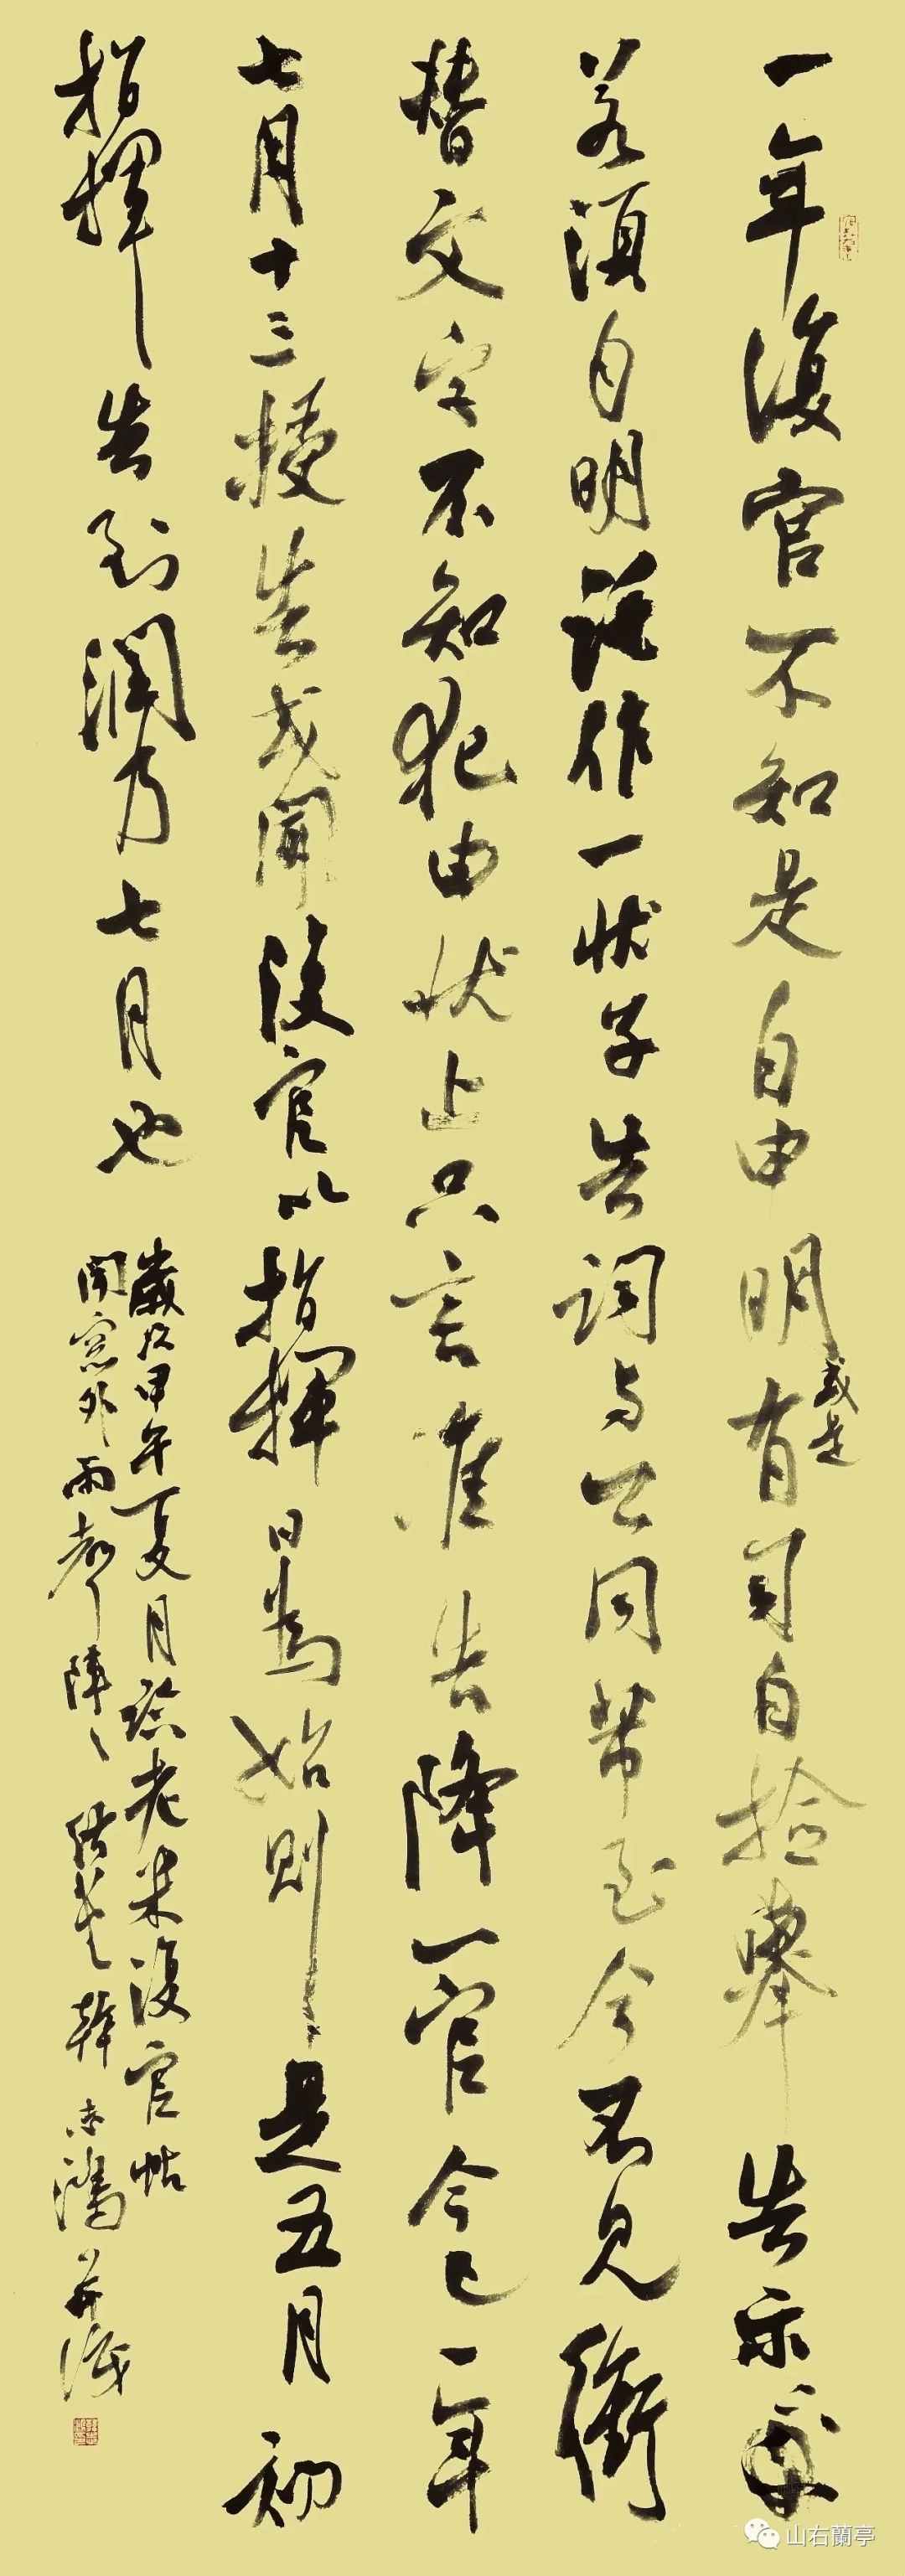 一年復官不知是自申明或是有司自撿舉告示
若須自明託作一狀子告詞与公同帶至今不見衝
替文字不知犯由狀上只言准告降一官今已一年
七月十三授告或聞復官以指揮日為始則是五月初
指揮告到潤方七月也
歲次甲午夏月臨老米復官帖
聞窓外雨聲陣々 鴻并識
山右蘭亭